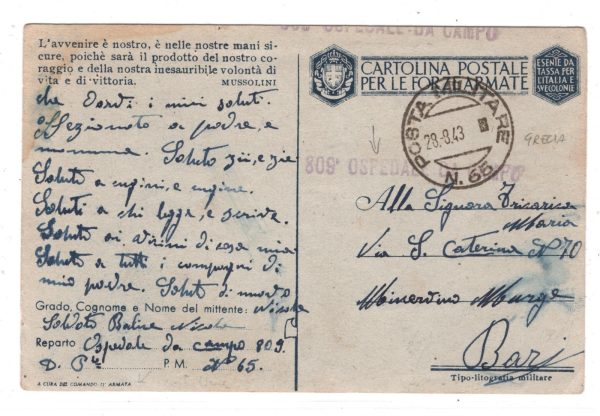 809° OSPEDALE DA CAMPO
L'avvenire è nostro, è nelle nostre mani si-
cure, poichè sarà il prodotto del nostro co-
raggio e della nostra inesauribile volontà di
vita e di vittoria. MUSSOLINI
che dardi i miei saluti.
affezionato a padre, e
mamma Saluto zii, e zie
Saluto a cugini, e cugine.
Saluti a chi legge, e scrive.
Saluto ai vicini di casa mia
Saluto a tutti i compagni di
mio padre. Saluti di nuovo
Nicola
Grado, Cognome e Nome del mittente:
Soldato Nicola
Reparto Ospedale da campo 809.
P.M. N° 65.
A CURA DEL COMANDO 11ª ARMATA
CARTOLINA POSTALE
PER LE FORZE ARMATE
ESENTE DA
TASSA PER
L'ITALIA E
SUE COLONIE
POSTA MILITARE
28.8.43
N. 65
GRECIA
809° OSPEDALE DA CAMPO
Alla Signora Tricarico
Maria
Via S. Caterina N° 70
Minervino Murge
Bari
Tipo-litografia militare